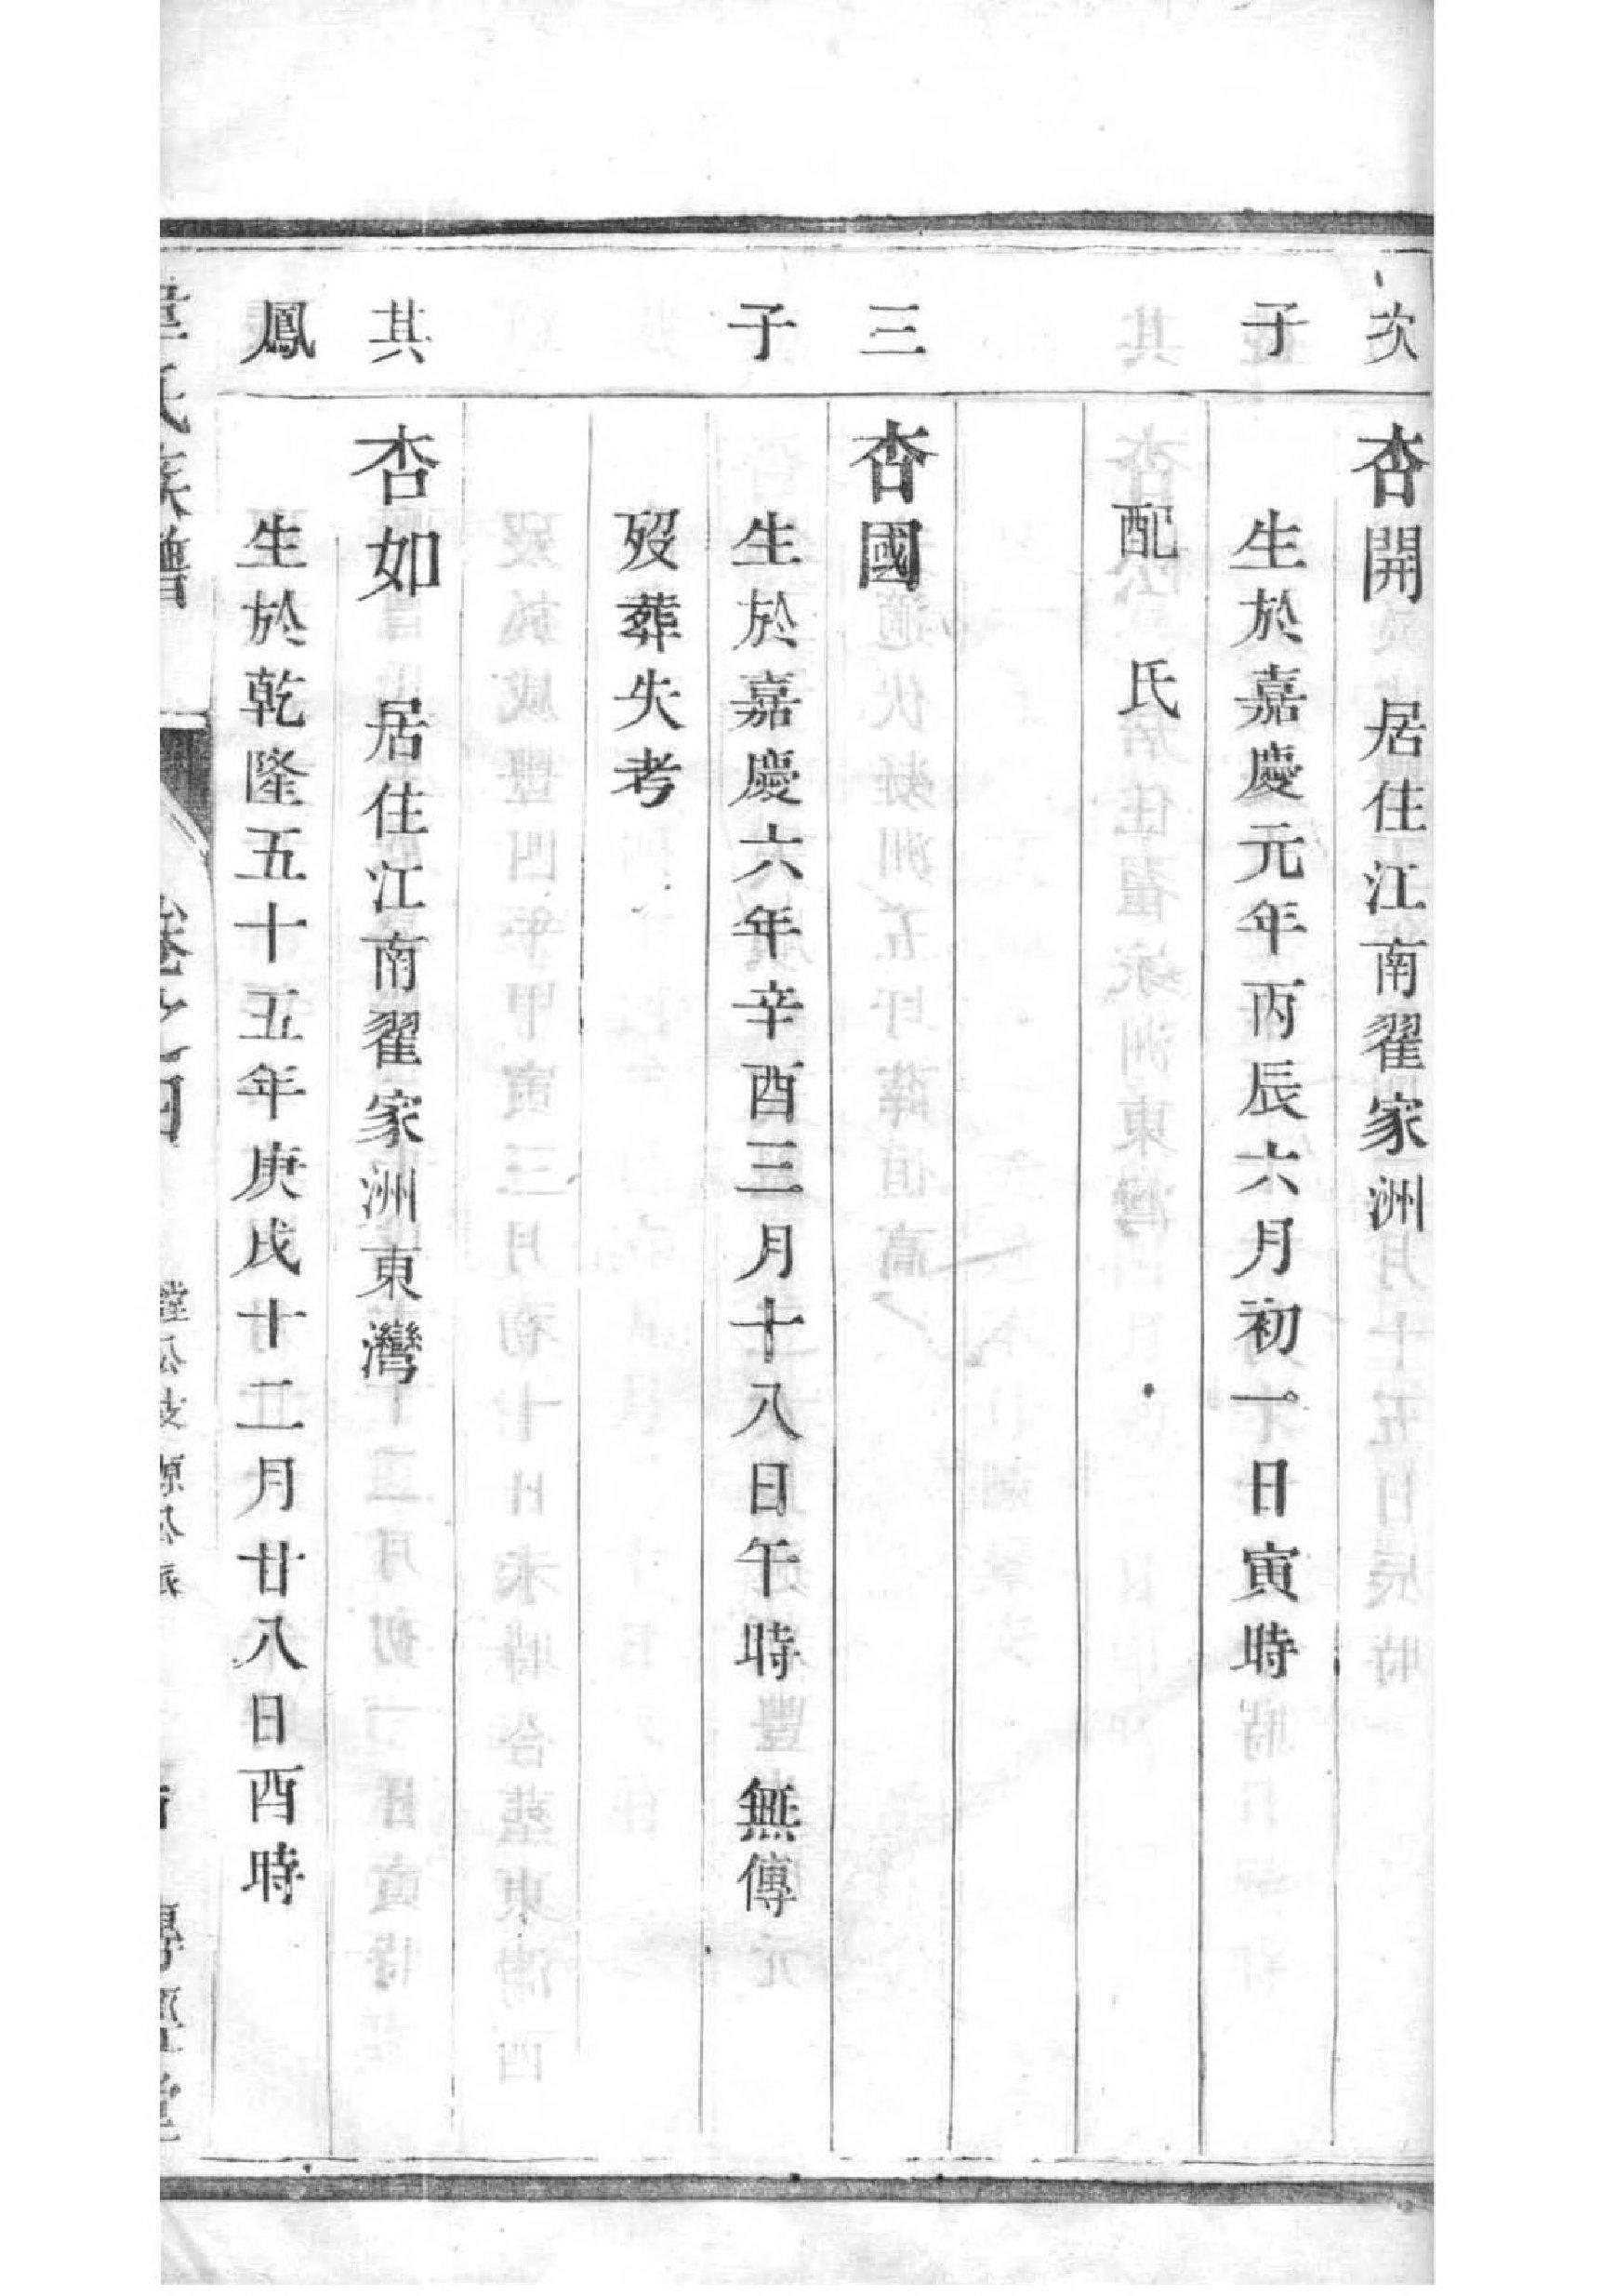 次
杏開 居住江南翟家洲
子
生於嘉慶元年丙辰六月初一日寅時
配 氏
三
杏國
子
生於嘉慶六年辛酉三月十八日午時 無傳
歿葬失考
其
杏如 居住江南翟家洲東灣
鳳
生於乾隆五十五年庚戌十二月廿八日酉時
氏族譜